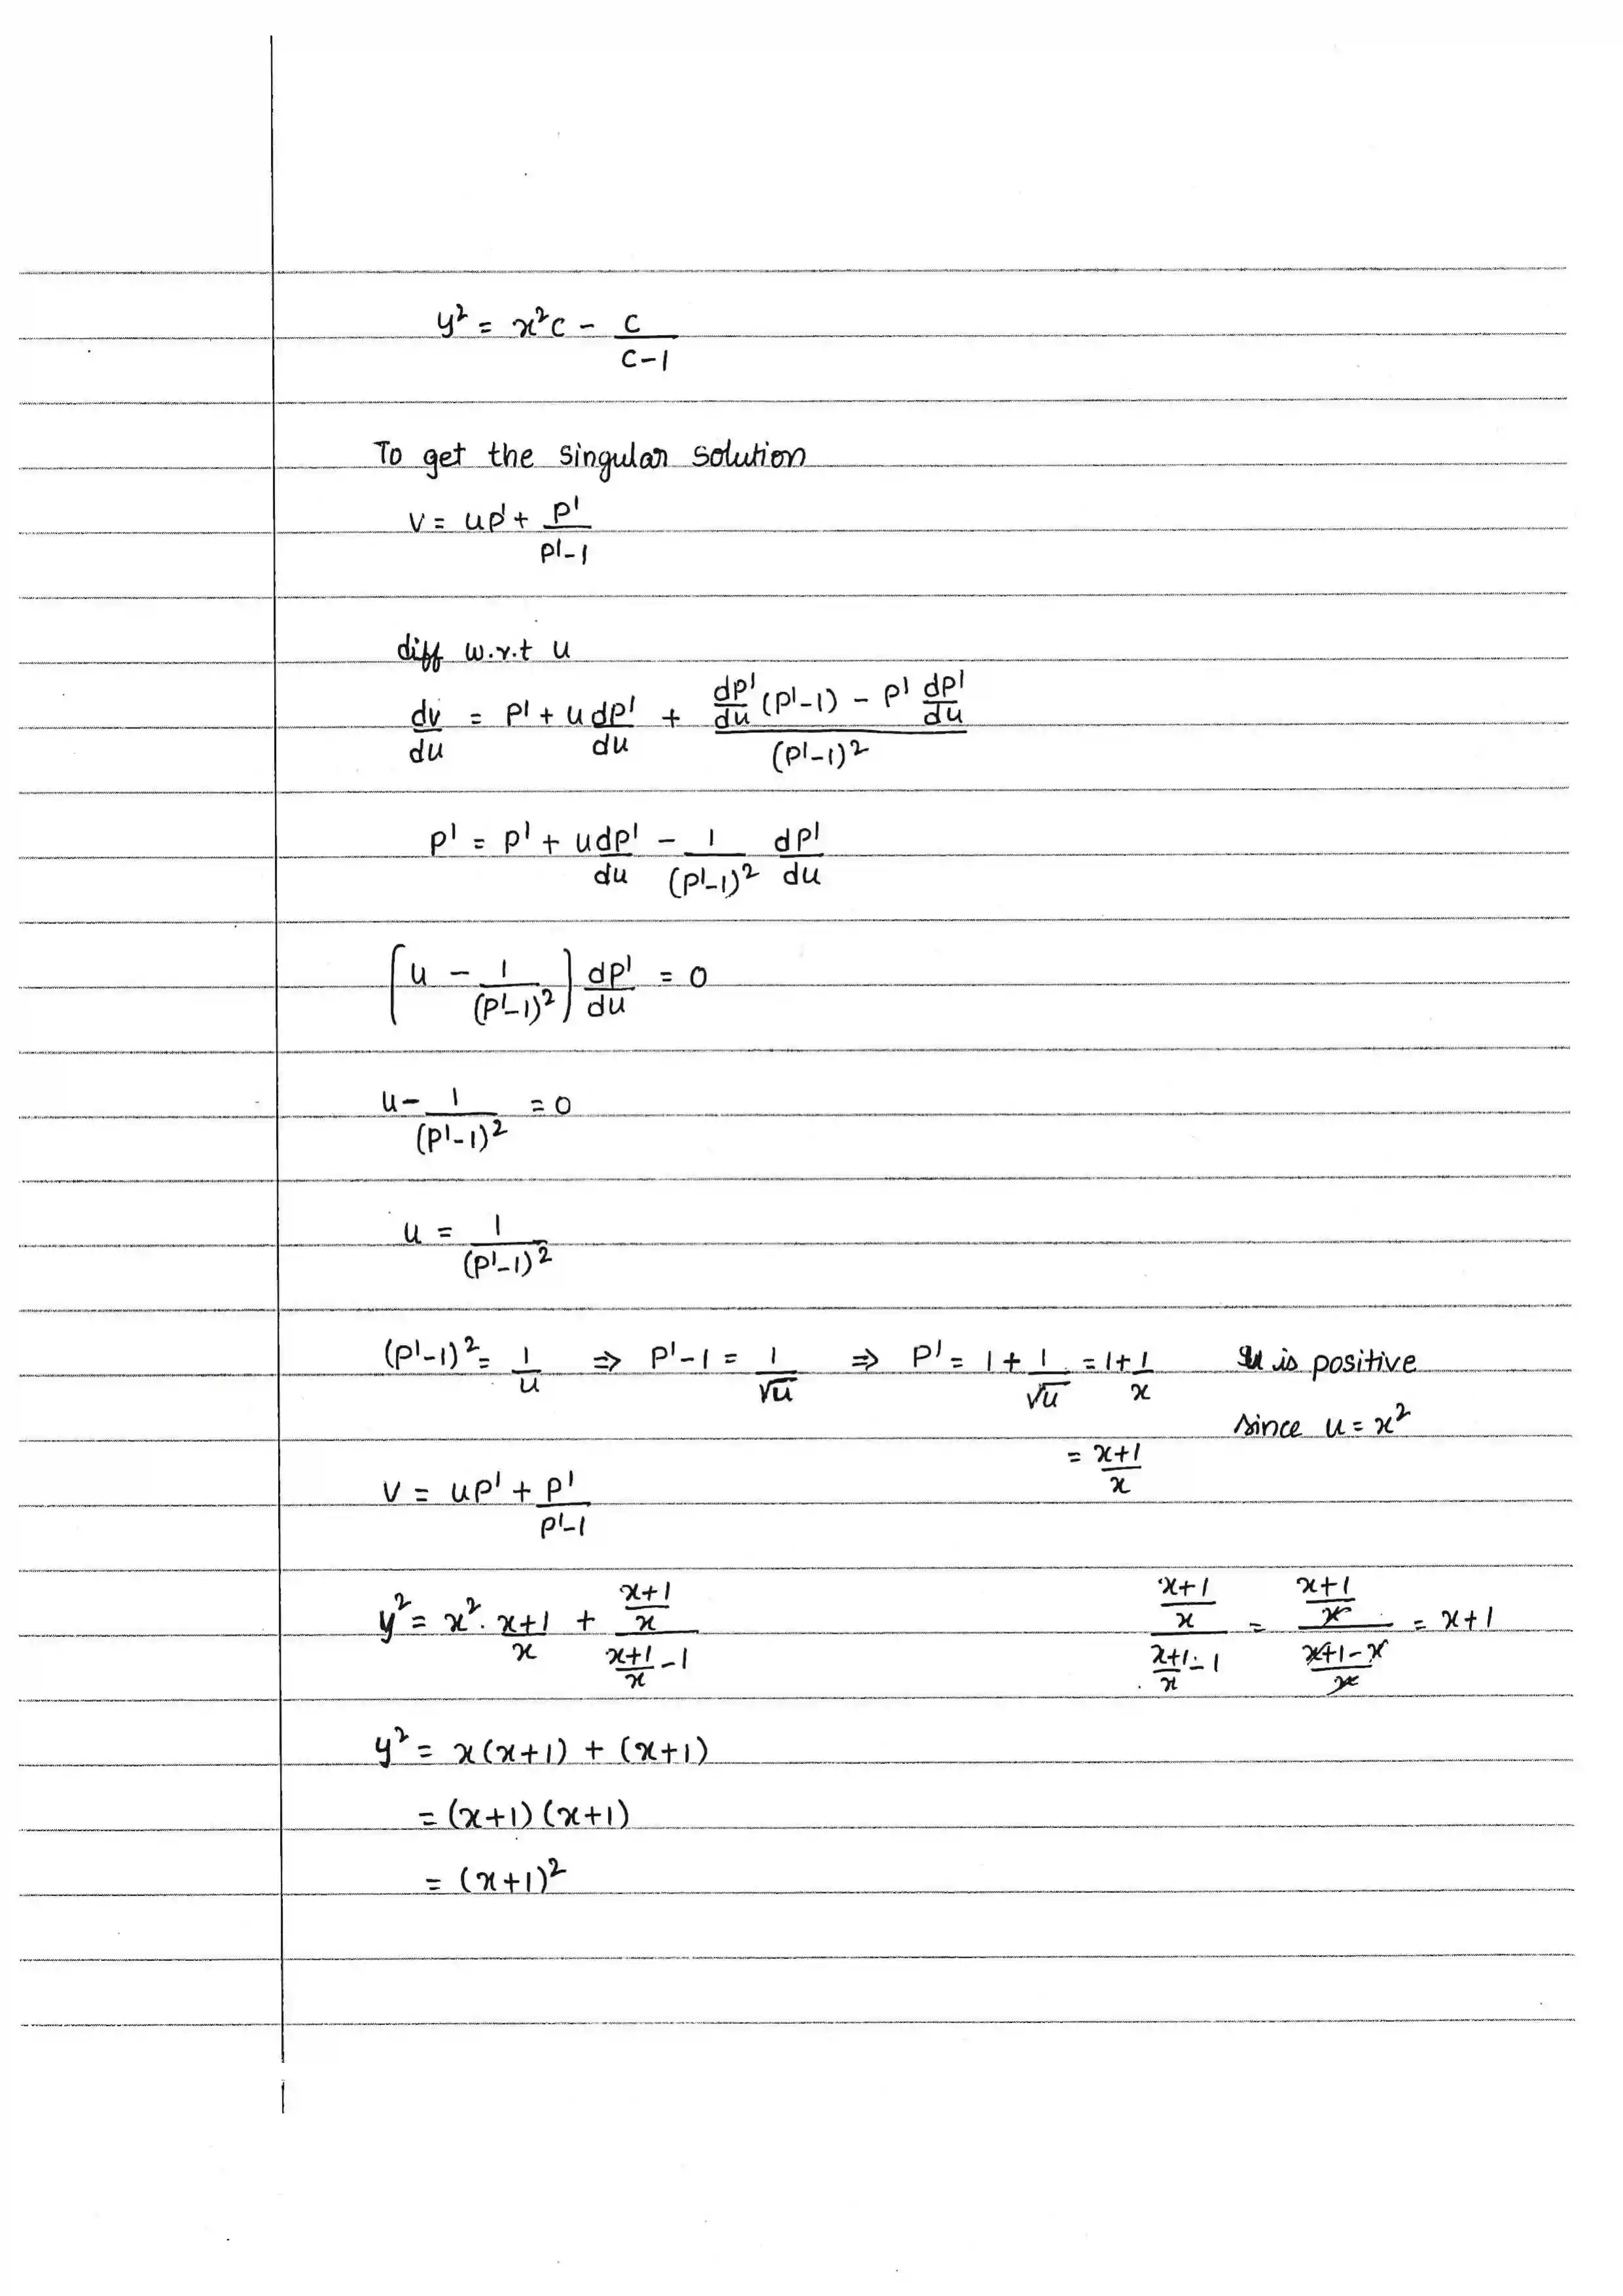 y² = x²c - c/(c-1)
To get the singular solution
v = up' + p'/(p'-1)
diff w.r.t u
dv/du = p' + u dp'/du + (dp'/du (p'-1) - p' dp'/du)/(p'-1)²
p' = p' + u dp'/du - 1/(p'-1)² dp'/du
[u - 1/(p'-1)²] dp'/du = 0
u - 1/(p'-1)² = 0
u = 1/(p'-1)²
(p'-1)² = 1/u ⇒ p'-1 = 1/√u ⇒ p' = 1 + 1/√u = 1 + 1/x u is positive
since u = x²
= (x+1)/x
v = up' + p'/(p'-1)
y² = x² · (x+1)/x + ((x+1)/x)/((x+1)/x - 1) ((x+1)/x)/((x+1)/x - 1) = ((x+1)/x)/((x+1-x)/x) = x+1
y² = x(x+1) + (x+1)
= (x+1)(x+1)
= (x+1)²